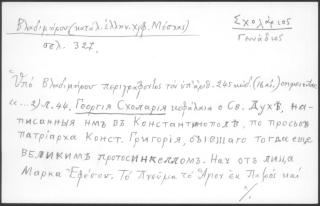 Βλαδιμήρου (κατάλ. ἑλλην. χρφ. Μόσχας)
Σχολάριος
Γεννάδιος
σελ. 327.
Ὑπὸ Βλαδιμήρου περιγράφοντος τὸν ὑπ' ἀριθ. 245 κώδ. (16 αἰ.) σημειοῦται
«... 2) Л. 94. Георгія Схоларія κεφάλαια о Св. Духѣ, на-
писанныя имъ въ Константинополѣ, по просьбѣ
патріарха Конст. Григорія, бывшаго тогда еще
великимъ протосинкелломъ. Нач. отъ лица
Марка Ефесск. Τὸ Πνεῦμα τὸ Ἅγιον ἐκ Πατρὸς καὶ